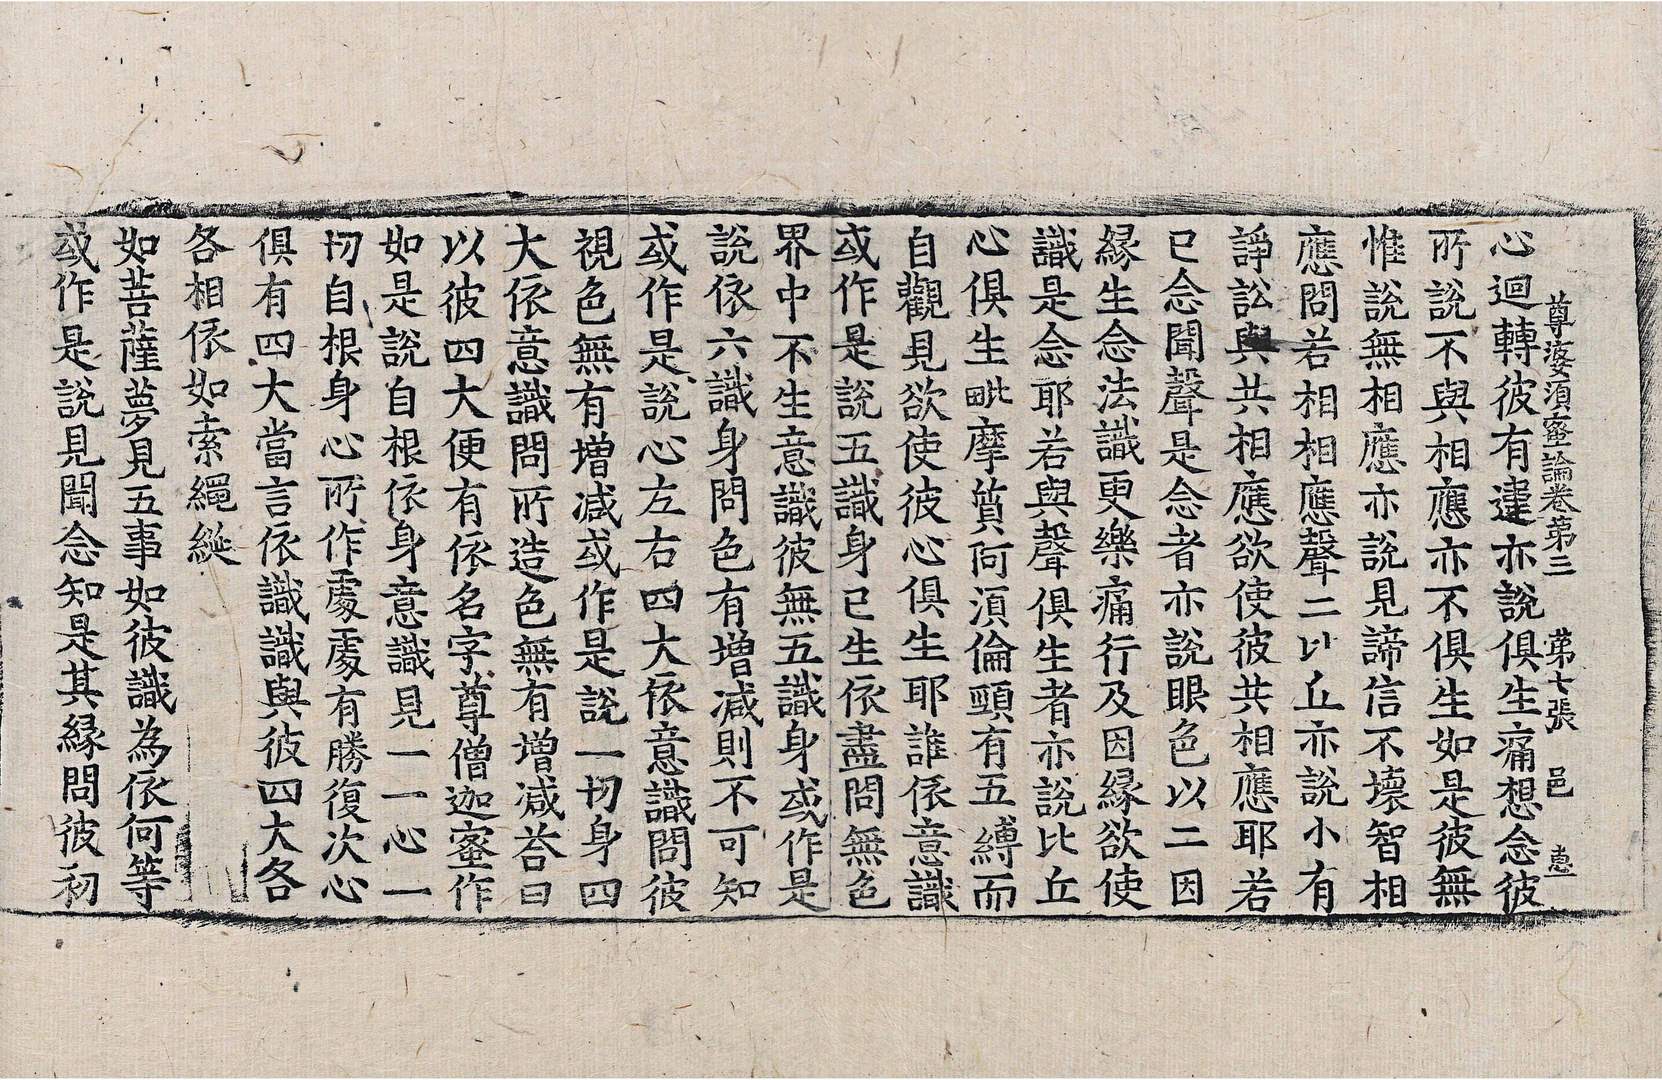 尊婆須蜜論卷第三 第七張 邑 惠
心迴轉彼有違亦說俱生痛想念彼
所說不與相應亦不俱生如是彼無
惟說無相應亦說見諦信不壞智相
應問若相相應聲二以丘亦說小有
諍訟與共相應欲使彼共相應耶若
已念聞聲是念者亦說眼色以二因
緣生念法識更樂痛行及因緣欲使
識是念耶若與聲俱生者亦說比丘
心俱生毗摩質阿須倫頸有五縛而
自觀見欲使彼心俱生耶誰依意識
或作是說五識身已生依盡問無色
界中不生意識彼無五識身或作是
說依六識身問色有增減則不可知
或作是說心左右四大依意識問彼
視色無有增減或作是說一切身四
大依意識問所造色無有增減荅曰
以彼四大便有依名字尊僧迦蜜作
如是說自根依身意識見一一心一
切自根身心所作處處有勝復次心
俱有四大當言依識識與彼四大各
各相依如索繩綖
如菩薩夢見五事如彼識為依何等
或作是說見聞念知是其緣問彼初